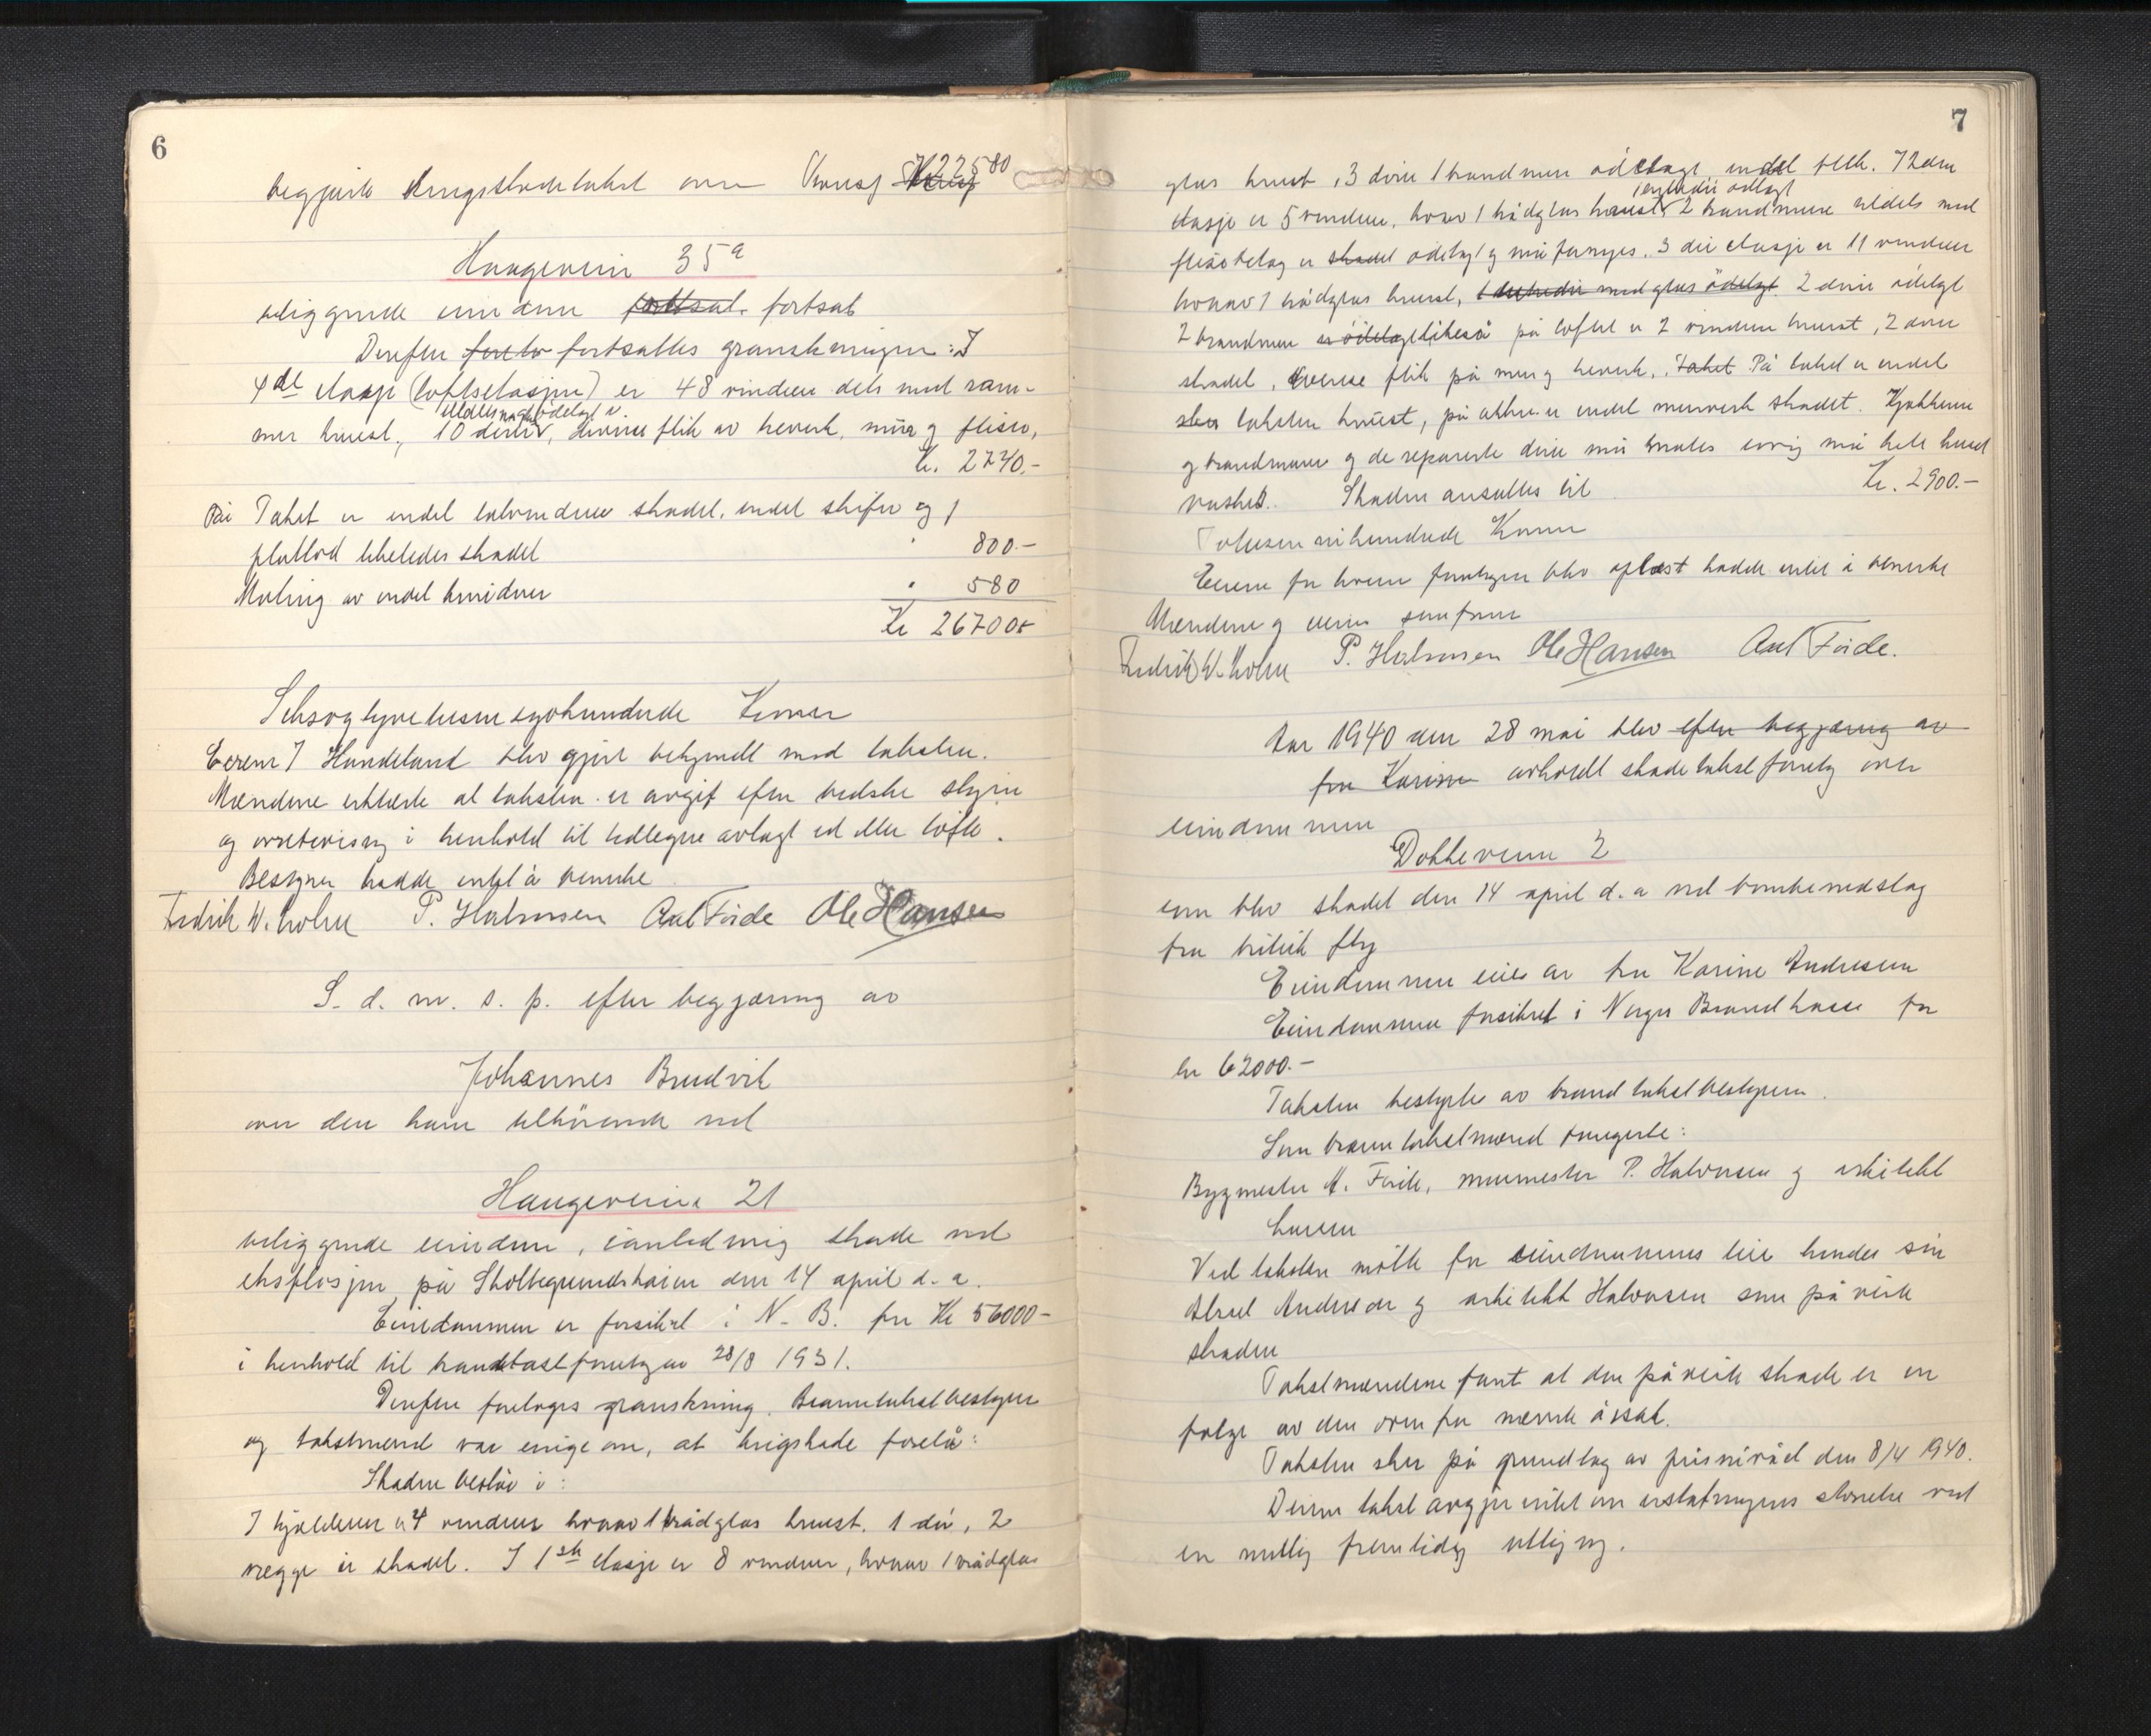 6
begjært krigsskadetakst over Transp 22580
Haugeveien 35a
beliggende eiendom fortsat. fortsat
Derefter forelo fortsattes granskningen: I
4de etasje (loftsetasjen) er 48 vinduer dels med ram-
mer knust, 10 dører, diverse flik av treverk, mur og fliser,
Kr. 2740.-
På Taket er endel takvinduer skadet, endel skifer og
platlod likeledes skadet 800.-
Maling av endel hvidner 580
Kr 26700.-
Seksogtyvetusensyvhundrede Kroner
Eeren J Handeland blev gjort bekjendt med taksten.
Mændene erklærte at taksten er avgit efter bedste skjøn
og overbevisning i henhold til tidligere avlagt ed eller løfte.
Bestyrer hadde intet å bemerke
Fredrik W. Holm P. Halvorsen Axel Førde Ole Hansen
S. d. m. s. p. efter begjæring av
Johannes Brudvik
over den ham tilhørende ved
Haugeveien 21
beliggende eiendom, i anledning skade ved
eksplosjon på Skoltegrundskaien den 14 april d. a.
Eiendommen er forsikret i N. B. for Kr 56000-
i henhold til brandtakstforretning av 28/8 1931.
Derefter foretoges granskning. Branntakstbestyrer
og takstmænd var enige om, at krigsskade forelå:
Skaden består i:
I kjelderen er 4 vinduer hvorav 1 trådglas knust. 1 dør, 2
vægge er skadet. I 1ste etasje er 8 vinduer, hvorav 1 trådglas
7
glas knust, 3 dører 1 brandmur ødelagt, endel flik. I 2den
1 entredør ødelagt
etasje er 5 vinduer, hvorav 1 trådglas knust, 2 brandmure tildels med
flisebelag er skadet ødelagt og må fornyes. 3 die etasje er 11 vinduer
hvorav 1 trådglas knust, 1 entredør med glas ødelagt. 2 dører ødelagt
2 brandmure er ødelagt likeså på loftet er 2 vinduer knust, 2 dører
skadet, diverse flik på mur og treverk. Taket På taket er endel
sten taksten knust, på altan er endel murverk skadet. Kjøkkene
og brandmurer og de reparerte dører må males øvrig må hele huset
vaskes. Skaden ansættes til Kr. 2900.-
Totusen nihundrede Kroner
Eieren for hvem forretningen blev oplæst hadde intet å bemerke
Mændene og eieren som foran
Fredrik W. Holm P. Halvorsen Ole Hansen Axel Førde.
Aar 1940 den 28 mai blev efter begjæring av
fru Karine avholdt skadetakstforretn over
eiendommen
Dokkeveien 2
som blev skadet den 14 april d. a ved bombenedslag
fra britisk fly
Eiendommen eies av fru Karine Andresen
Eiendommen forsikret i Norges Brandkasse for
kr 62000.-
Taksten bestyrtes av brandtakstbestyreren.
Som branntakstmænd fungerte:
Bygmester A. Førde, murmester P. Halvorsen og arkitekt
Larsen
Ved taksten møtte for eiendommens eier hendes sønn
Aksel Andresen og arkitekt Halvorsen som påviste
skaden
Takstmændene fant at den påviste skade er en
følge av den ovenfor nævnte årsak.
Taksten sker på grundlag av prisnivået den 8/4 1940.
Denne takst avgjør intet om erstatningens størrelse ved
en mulig fremtidig utligning.